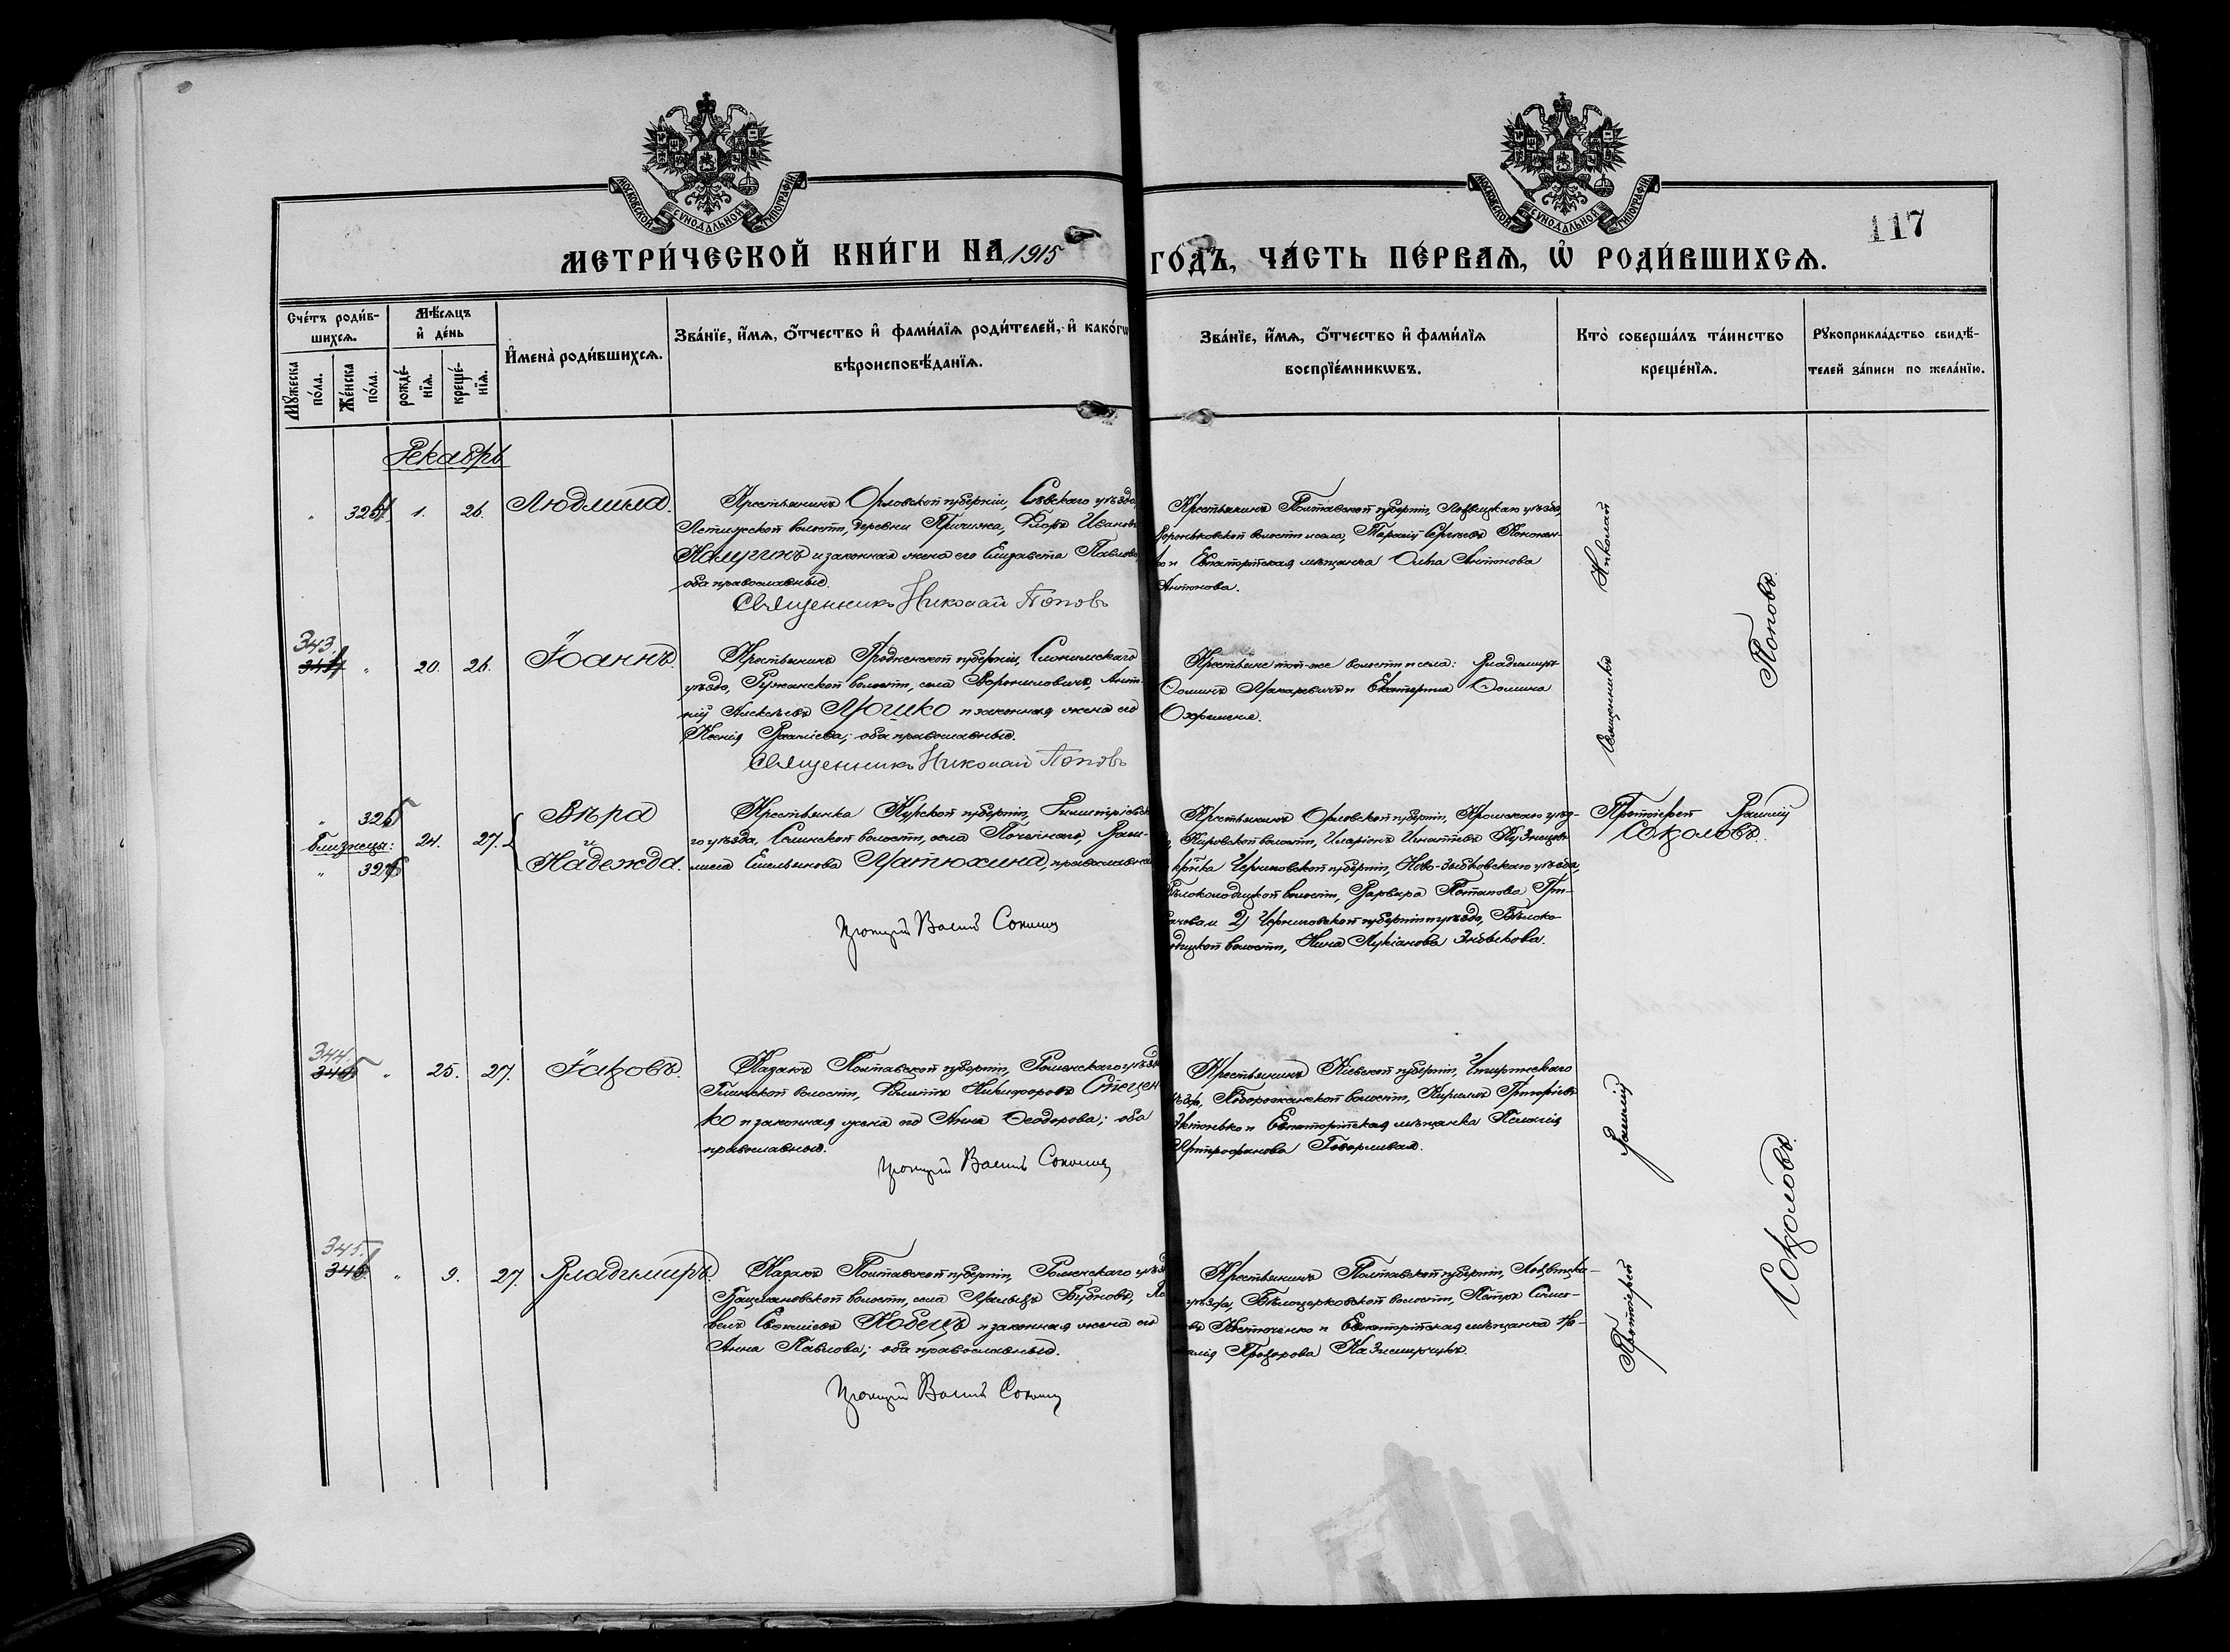 117
МОСКОВСКОЙ СѴНОДАЛЬНОЙ ТИПОГРАФІИ
МОСКОВСКОЙ СѴНОДАЛЬНОЙ ТИПОГРАФІИ
МЕТРИ́ЧЕСКОЙ КНИ́ГИ НА 1915 ГО́ДЪ, ЧА́СТЬ ПЕ́РВАѦ, Ѡ҆ РОДИ́ВШИХСѦ.
Сче́тъ роди́в-
шихсѧ.
Мꙋ́жеска по́ла.
Же́нска по́ла.
Мѣ́сѧцъ
и҆ де́нь
рожде́-нїѧ.
креще́-нїѧ.
И҆мена̀ роди́вшихсѧ.
Зва́нїе, и҆́мѧ, ѻ҆́тчество и҆ фами́лїѧ роди́телей, и҆ како́гѡ
вѣроисповѣ́данїѧ.
Зва́нїе, и҆́мѧ, ѻ҆́тчество и҆ фами́лїѧ
воспрїе́мникѡвъ.
Кто̀ соверша́лъ та́инство
креще́нїѧ.
Рꙋкоприкла́дство свидѣ́-
телей за́писи по жела́нїю.
Декабрь
" 324. 1. 26. Людмила.
Крестьянинъ Орловской губерніи, Сѣвскаго уѣзда,
волости, деревни Причижа, Флоръ Ивановъ
Калугинъ и законная жена его Елизавета Павлова,
оба православные.
Священникъ Николай Поповъ
Крестьянинъ Полтавской губерніи, Лохвицкаго уѣзда,
Вороньковской волости и села, Тарасій Сергѣевъ
и Евпаторійская мѣщанка Ольга Антонова
Антонова.
Священникъ Николай Поповъ.
343. 20. 26. Іоаннъ.
Крестьянинъ Гродненской губерніи, Слонимскаго
уѣзда, Ружанской волости, села Ворониловичъ, Анто-
ній Алексѣевъ Мошко и законная жена его
Ксенія Васильева; оба православные.
Священникъ Николай Поповъ
Крестьяне той-же волости и села: Владимиръ
Макаревичъ и Екатерина
" 325
Близнецы: 24. 27.
" 326
Вѣра
и
Надежда.
Крестьянка Курской губерніи, Дмитріевска-
го уѣзда, волости, села Васи-
лиса Емельянова Матюхина, православная
Протоіерей Василій Соколовъ
Крестьянинъ Орловской губерніи, Кромскаго уѣз-
волости, Иларіонъ Игнатьевъ Кузнецовъ
Черниговской губерніи, Ново-Зыбковскаго уѣзда,
Бѣлоколодецкой волости, Варвара Потапова
2) Черниговской губерніи и уѣзда, Бѣлоко-
волости, Нина Лукіанова
Протоіерей Василій
Соколовъ.
344. 25. 27. Іаковъ.
Казакъ Полтавской губерніи, Роменскаго уѣзда
Глинской волости, Филиппъ Никифоровъ Стецен
ко и законная жена его Анна Ѳеодорова; оба
православные.
Протоіерей Василій Соколовъ
Крестьянинъ Кіевской губерніи, Чигиринскаго
уѣзда, Подорожанской волости, Кириллъ Григорьевъ
и Евпаторійская мѣщанка Пелагія
Митрофанова Говорливая.
345. 9. 27. Владимиръ.
Казакъ Полтавской губерніи, Роменскаго уѣзда
волости, села Бубновъ,
Кобецъ и законная жена его
Анна Павлова; оба православные.
Протоіерей Василій Соколовъ
Крестьянинъ Полтавской губерніи, Лохвицка-
уѣзда, Бѣлоцерковской волости, Петръ
Костюченко и Евпаторійская мѣщанка
Прохорова
Протоіерей Василій Соколовъ.